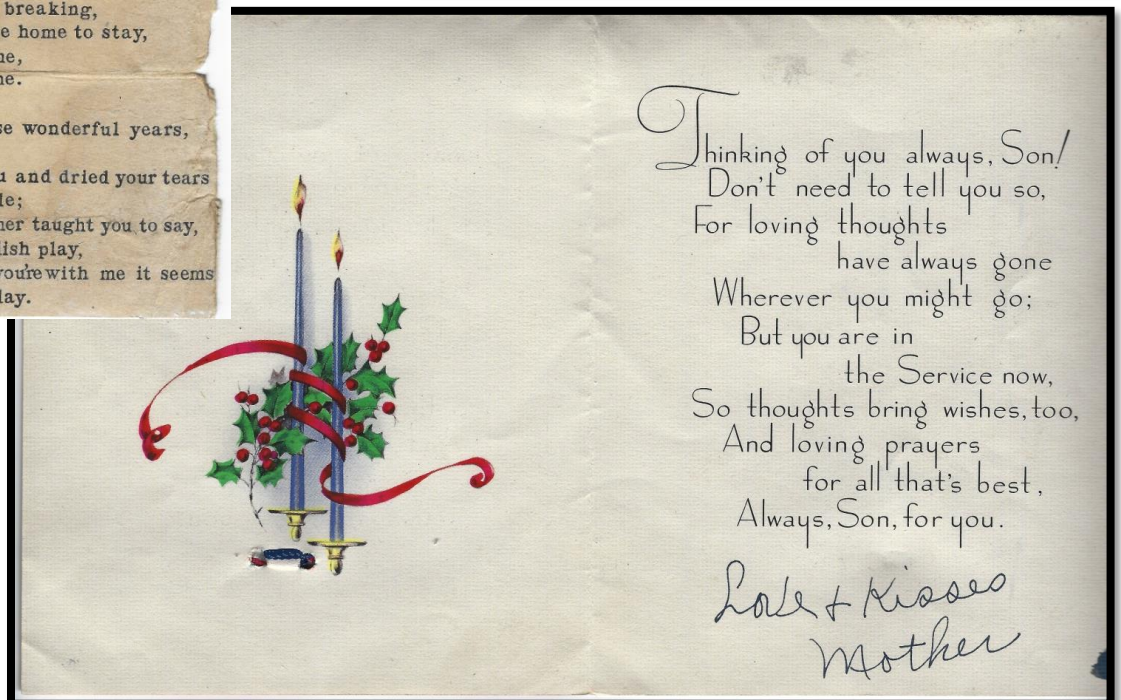 breaking,
e home to stay,
ne,
ne.
se wonderful years,
u and dried your tears
le;
her taught you to say,
lish play,
you're with me it seems
lay.
Thinking of you always, Son!
Don't need to tell you so,
For loving thoughts
have always gone
Wherever you might go;
But you are in
the Service now,
So thoughts bring wishes, too,
And loving prayers
for all that's best,
Always, Son, for you.
Love & Kisses
Mother